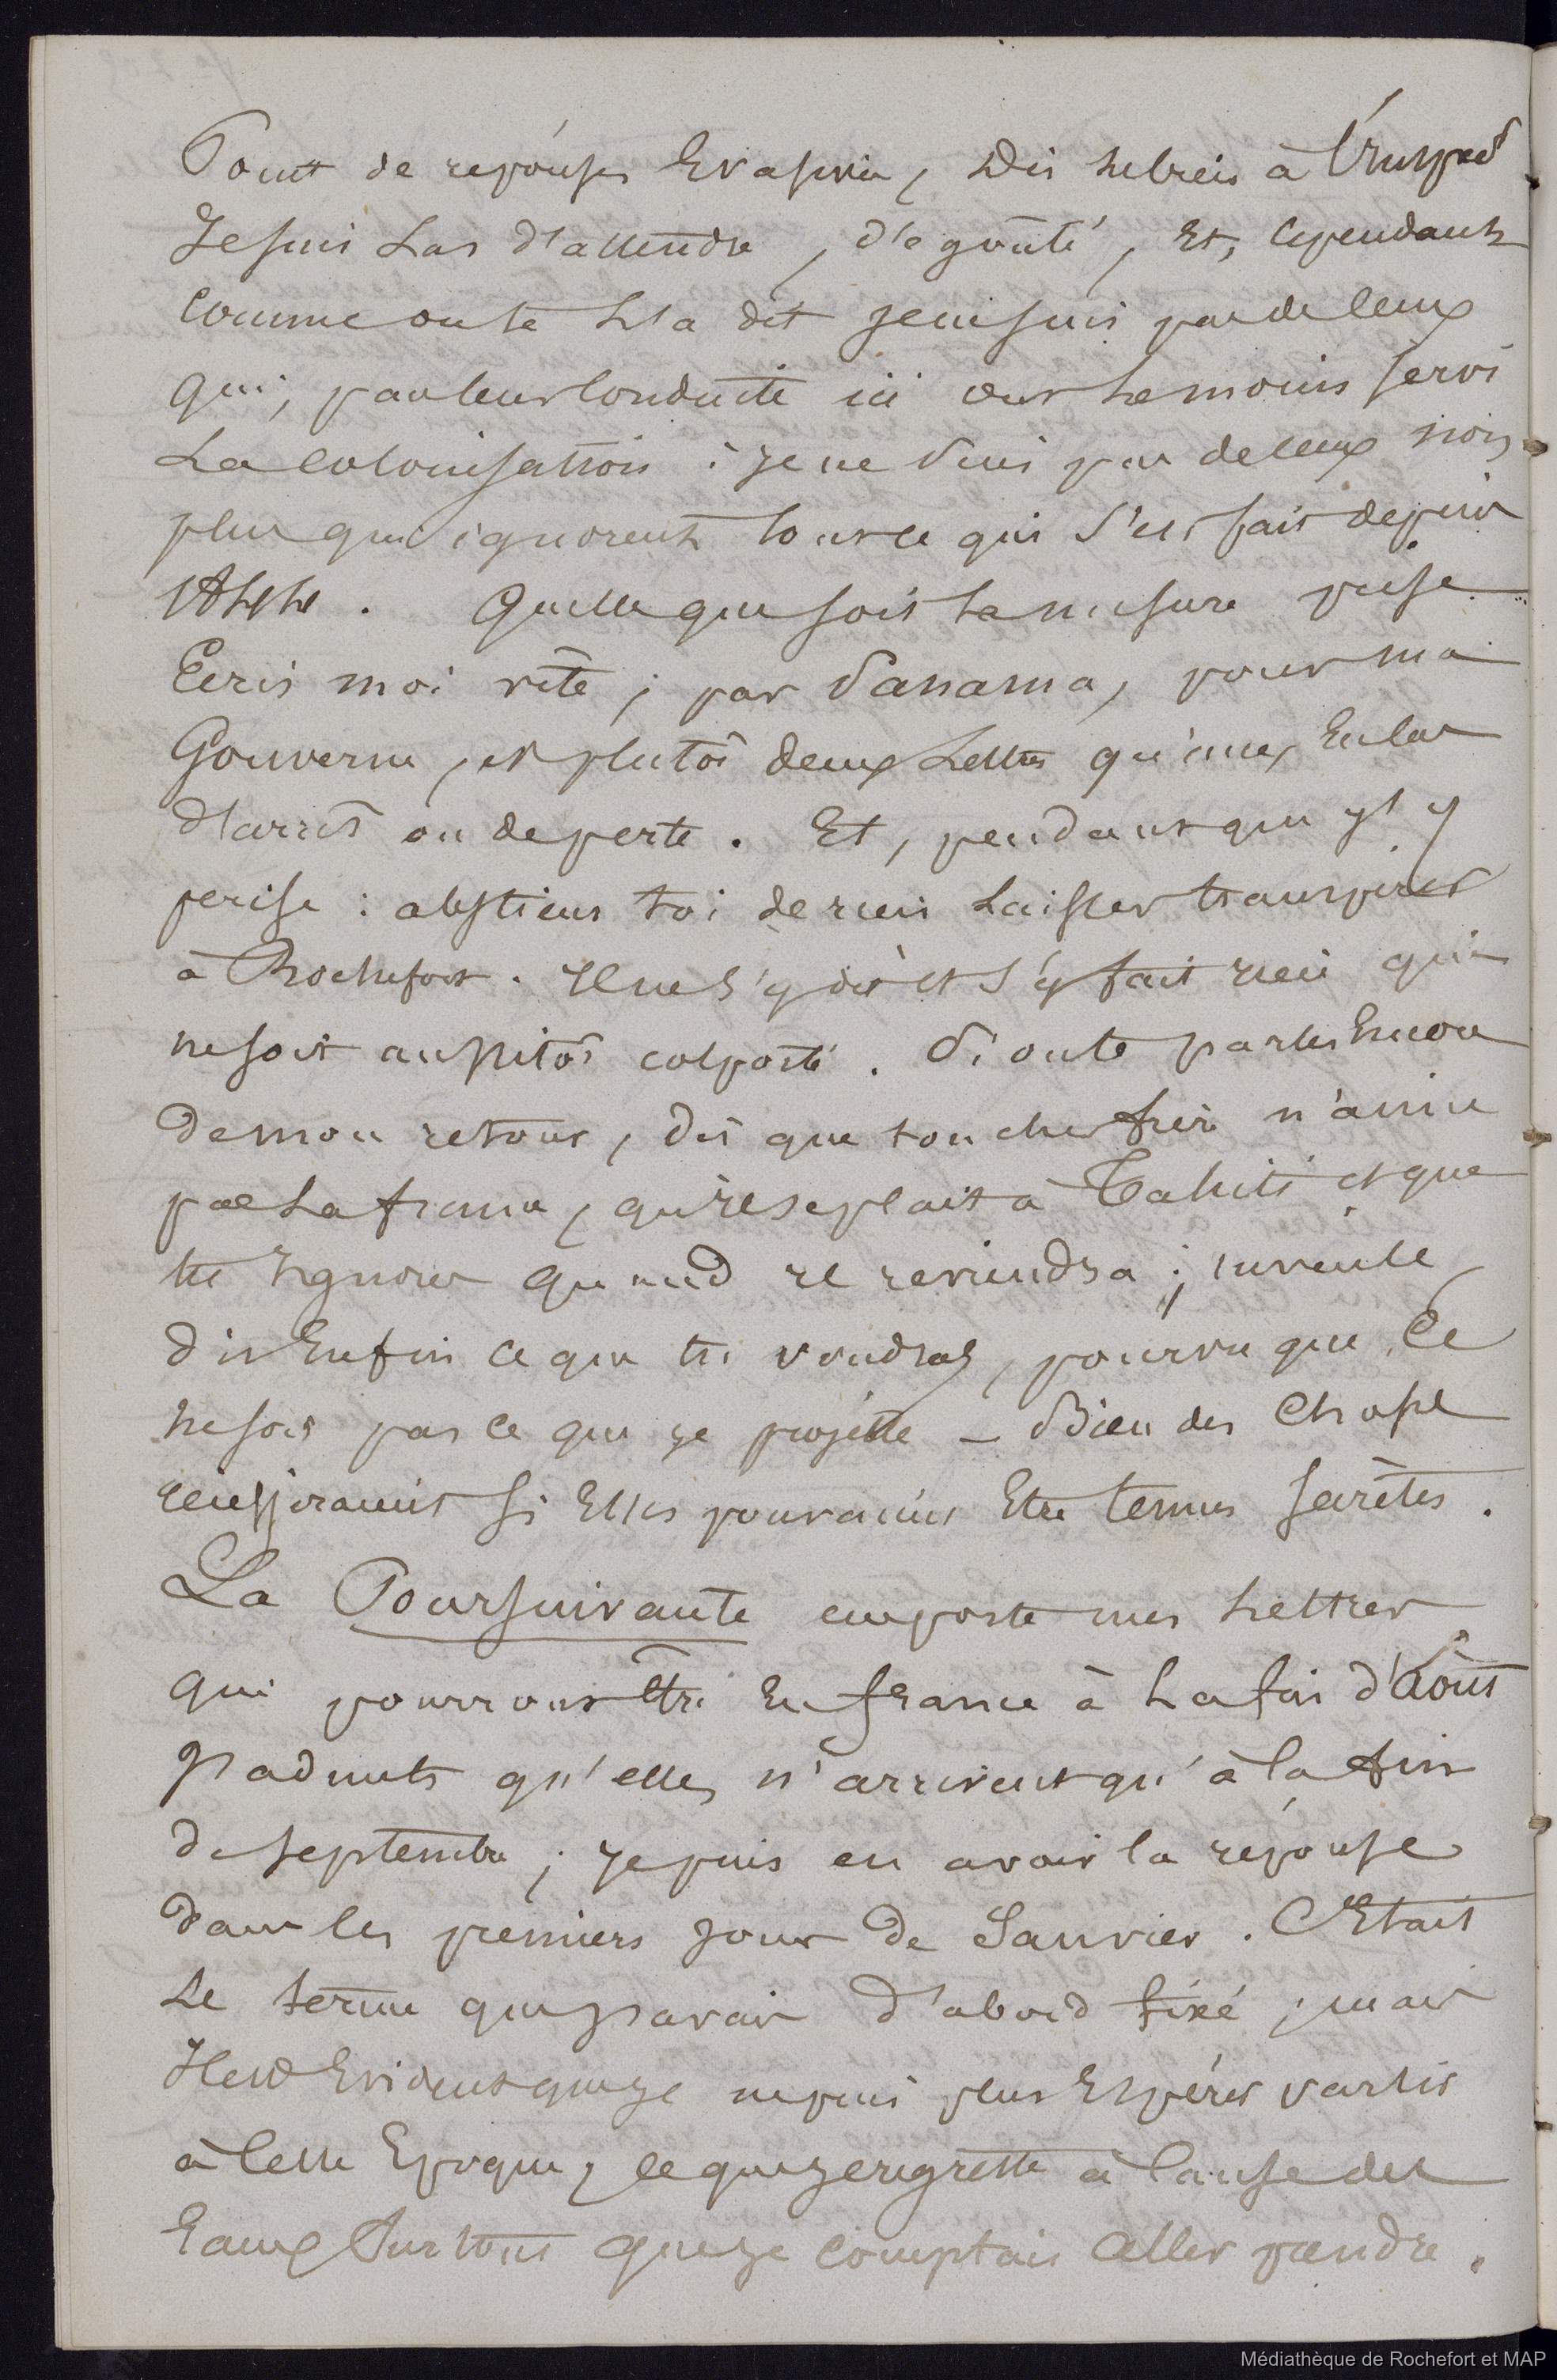 Point de réponses Evasives, dis le bien à
Je suis las d'attendre, dégoûté, Et, cependant
comme on te l'a dit je ne suis pas de ceux
qui, par leur conduite ici ont le moins servi
La colonisation : je ne suis pas de ceux non
plus qui ignorent tout ce qui s'est fait depuis
1844. Quelle que soit la mesure prise
Ecris moi vite ; par Panama, pour ma
Gouverne, et plutôt deux Lettres qu'une, En cas
d'arrêt ou de perte. Et, pendant que j'y
pense : abstiens toi de rien Laisser transpirer
à Rochefort. Il ne s'y dit et s'y fait rien qui
ne soit aussitôt colporté. Si on te parles Encore
de mon retour, dis que ton cher frère n'aime
pas La france, qu'il se plait à Tahiti et que
tu Ignores quand il reviendra ; invente,
dis Enfin ce que tu voudras, pourvu que Ce
ne soit pas ce que je projette _ Bien des Choses
réussiraient si Elles pouvaient Etre tenues secrètes.
La Poursuivante emporte mes Lettres
qui pourront être En france à La fin d'Août
J'admets qu'elles n'arrivent qu'à la fin
de septembre ; je puis en avoir la réponse
dans les premiers jours de Janvier. C'Etait
Le terme que j'avais d'abord fixé ; mais
Il est Evident que je ne puis plus Espérer partir
à Cette Epoque, ce que je regrette à Cause des
Eaux Surtout que je comptais aller prendre.
Médiathèque de Rochefort et MAP